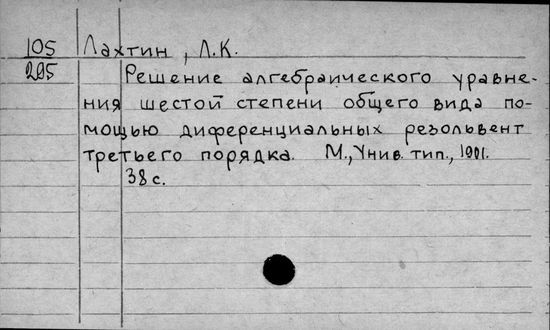 105 Лахтин, Л.К.
205 Решение алгебраического уравне-
ния шестой степени общего вида по-
мощью диференциальных резольвент
третьего порядка. М., Унив. тип., 1901.
38 с.